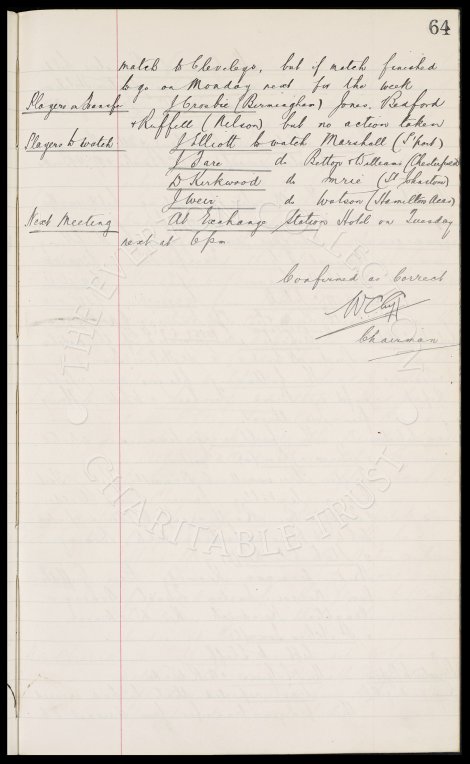 64
match to Cleveleys, but if match finished
to go on Monday next for the week
Players on Transfer J Crosbie (Birmingham) Jones, Bedford
& Ruffell (Nelson) but no action taken
Players to watch J Elliott to watch Marshall (S'port)
V Fare do Bettop & William (Chesterfield)
D Kirkwood do Imrie (St Johnston)
J Weir do Watson (Hamilton Acas)
Next Meeting At Exchange Station Hotel on Tuesday
next at 6 pm
Confirmed as Correct
W. C. Cuff
Chairman
THE EVERTON COLLECTION
CHARITABLE TRUST